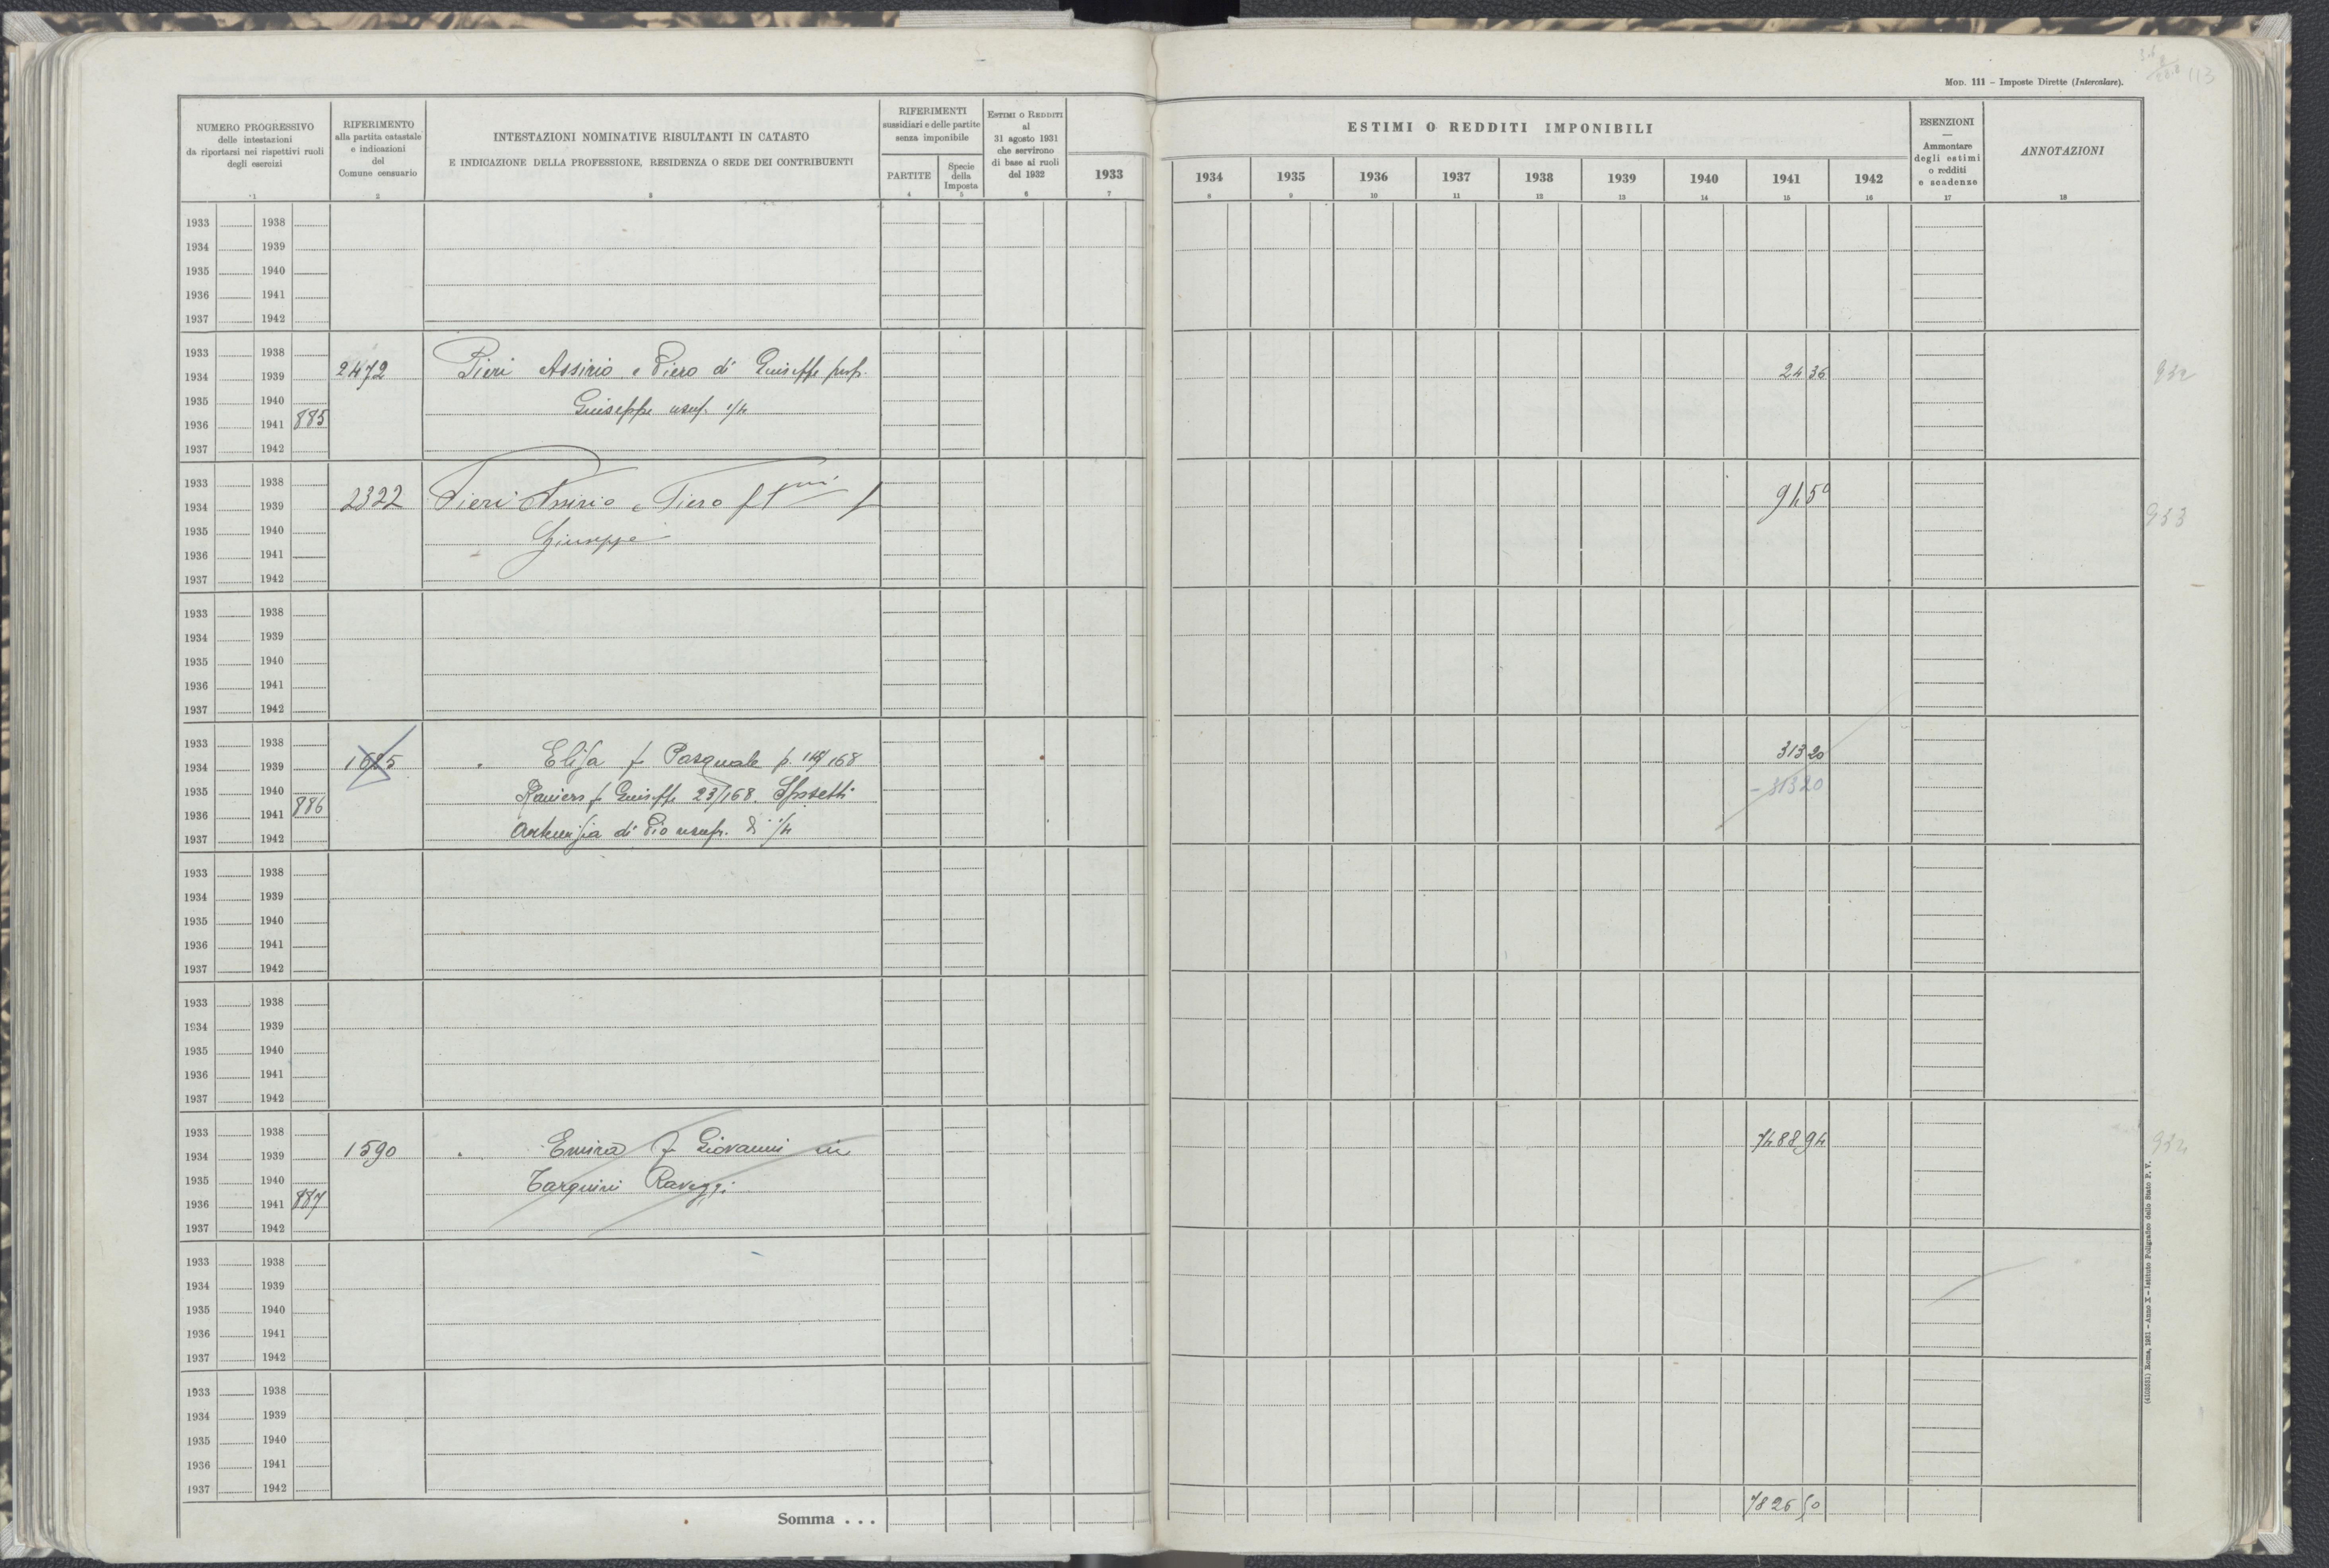 MOD. 111 – Imposte Dirette (Intercalare).
113
NUMERO PROGRESSIVO
delle intestazioni
da riportarsi nei rispettivi ruoli
degli esercizi
1
RIFERIMENTO
alla partita catastale
e indicazioni
del
Comune censuario
2
INTESTAZIONI NOMINATIVE RISULTANTI IN CATASTO
E INDICAZIONE DELLA PROFESSIONE, RESIDENZA O SEDE DEI CONTRIBUENTI
3
RIFERIMENTI
sussidiari e delle partite
senza imponibile
PARTITE
4
Specie
della
Imposta
5
ESTIMI O REDDITI
al
31 agosto 1931
che servirono
di base ai ruoli
del 1932
6
ESTIMI O REDDITI IMPONIBILI
1933 1934 1935 1936 1937 1938 1939 1940 1941 1942
7 8 9 10 11 12 13 14 15 16
ESENZIONI
—
Ammontare
degli estimi
o redditi
e scadenze
17
ANNOTAZIONI
18
1933 1938
1934 1939
1935 1940
1936 1941
1937 1942
1933 1938
1934 1939 2472 Pieri Assirio e Piero di Giuseppe prop. 24 36 932
1935 1940 Giuseppe usuf. 1/4
1936 1941 885
1937 1942
1933 1938
1934 1939 2322 Pieri Assirio e Piero 94 50 933
1935 1940 Giuseppe
1936 1941
1937 1942
1933 1938
1934 1939
1935 1940
1936 1941
1937 1942
1933 1938
1934 1939 Elisa f Pasquale p. /168 313 20
1935 1940 Raniero f Giuseppe 23/168. Sposetti - 313 20
1936 1941 886
1937 1942 Artemisia di Pio usufr. di 1/4
1933 1938
1934 1939
1935 1940
1936 1941
1937 1942
1933 1938
1934 1939
1935 1940
1936 1941
1937 1942
1933 1938
1934 1939 1590 " Emira f Giovanni in 7488 94
1935 1940 Tarquini Raveggi
1936 1941 887
1937 1942
1933 1938
1934 1939
1935 1940
1936 1941
1937 1942
1933 1938
1934 1939
1935 1940
1936 1941
1937 1942
Somma . . . 7826 50
(4103551) Roma, 1931 – Anno X – Istituto Poligrafico dello Stato P. V.